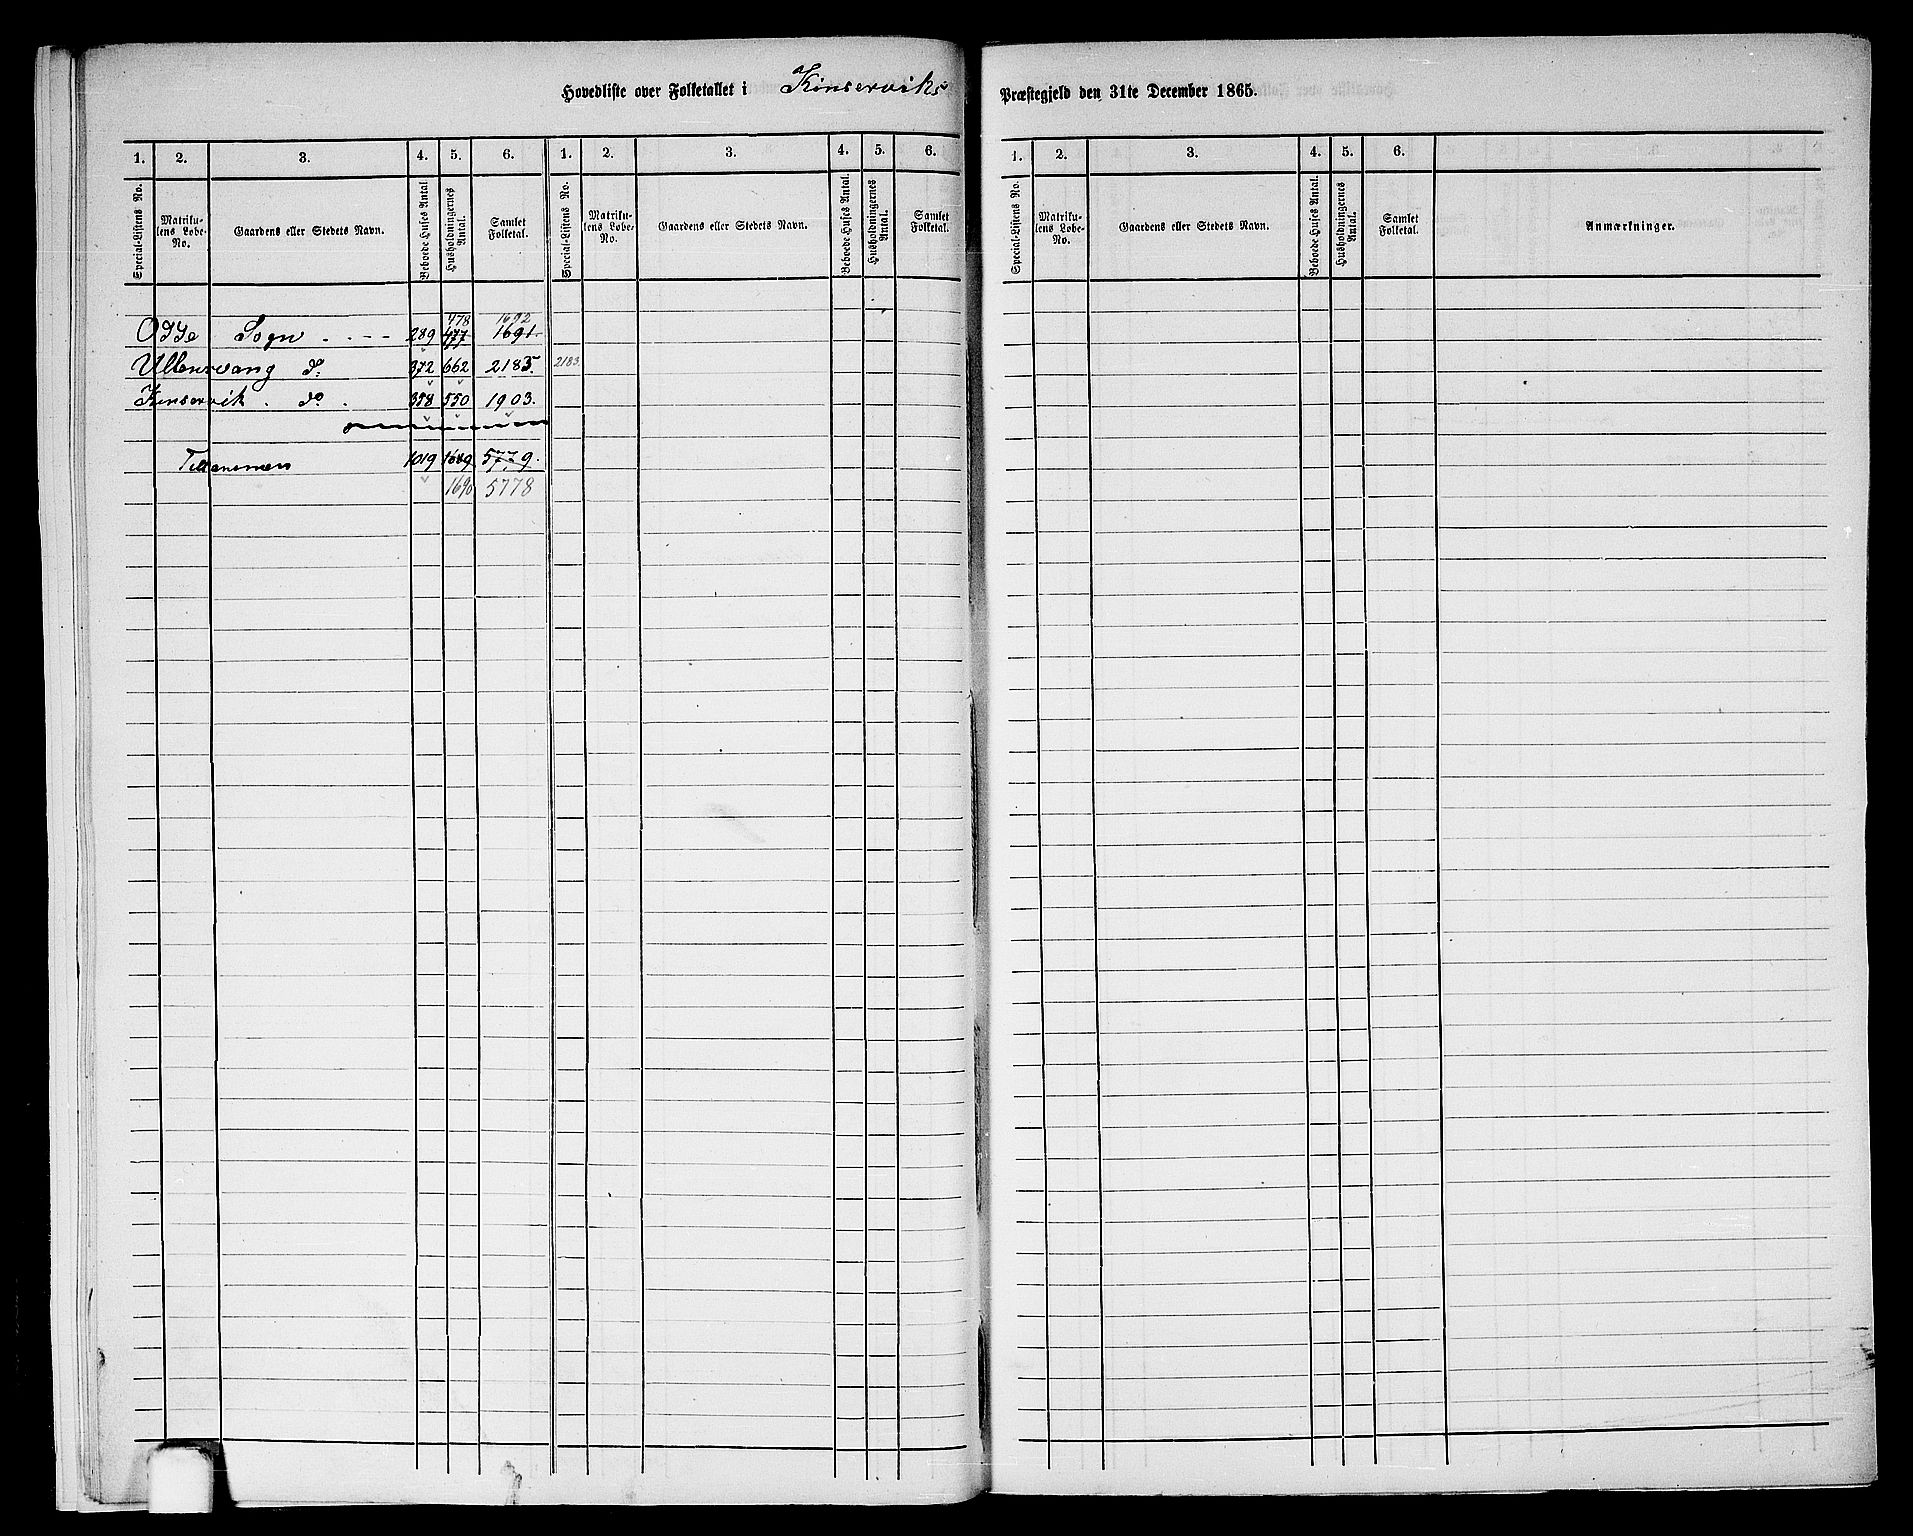 Hovedliste over Folketallet i Kinserviks Præstegjeld den 31te December 1865.
1. 2. 3. 4. 5. 6. 1. 2. 3. 4. 5. 6. 1. 2. 3. 4. 5. 6.
Special-Listens No. Matrikulens Løbe-No. Gaardens eller Stedets Navn. Beboede Huses Antal. Husholdningernes Antal. Samlet Folketal. Special-Listens No. Matrikulens Løbe-No. Gaardens eller Stedets Navn. Beboede Huses Antal. Husholdningernes Antal. Samlet Folketal. Special-Listens No. Matrikulens Løbe-No. Gaardens eller Stedets Navn. Beboede Huses Antal. Husholdningernes Antal. Samlet Folketal. Anmærkninger.
478 1692
Odde Sogn . . - - 289 477 1691.
Ullensvang do. 372 662 2185. 2183.
Kinservik . do . 358 550 1903.
Tilsammen 1019 1689 5779.
1690 5778